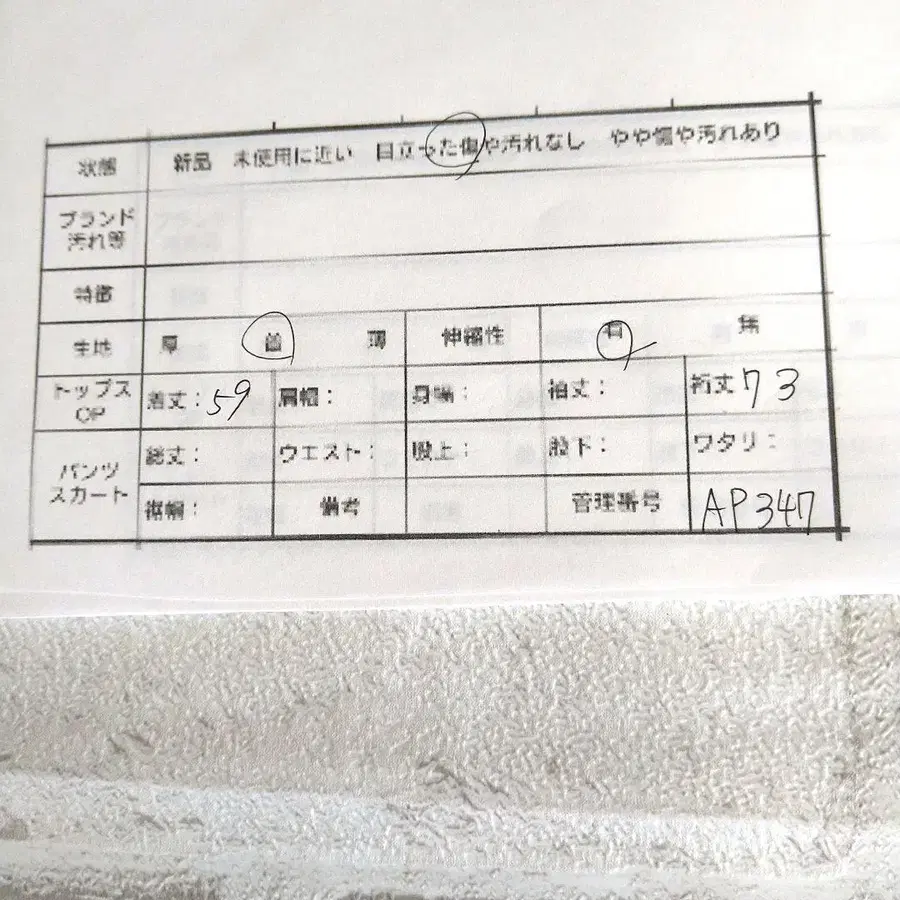 状態 新品 未使用に近い 目立った傷や汚れなし やや傷や汚れあり
ブランド
汚れ等
特徴
生地 厚 普 薄 伸縮性 有 無
トップス
OP
着丈：59 肩幅： 身幅： 袖丈： 裄丈73
パンツ
スカート
総丈： ウエスト： 股上： 股下： ワタリ：
裾幅： 備考 管理番号 AP347